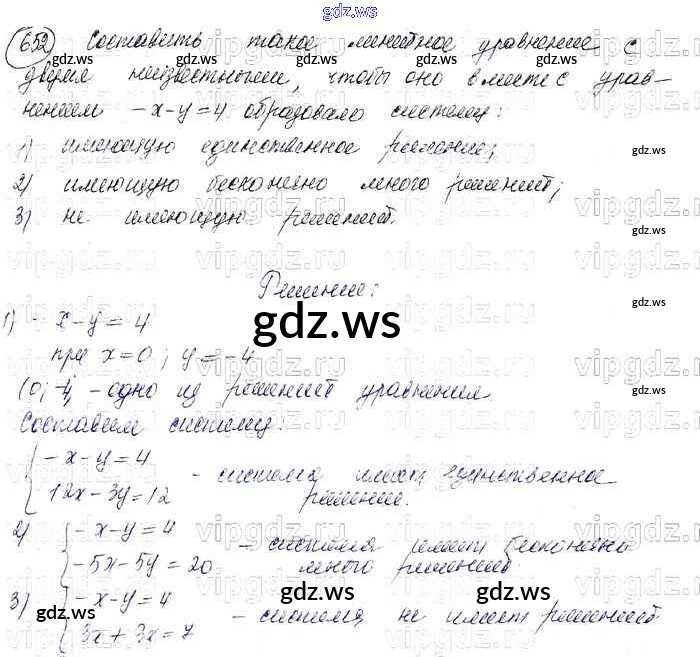 gdz.ws
652 Составить такое линейное уравнение с
двумя неизвестными, чтобы оно вместе с урав-
нением -x-y=4 образовало систему:
1) имеющую единственное решение;
2) имеющую бесконечно много решений;
3) не имеющую решений.
Решение:
1) -x-y=4
при x=0; y=-4
(0; -4) - одно из решений уравнения
Составим систему:
{-x-y=4
12x-3y=12 - система имеет единственное
решение.
2) {-x-y=4
-5x-5y=20 - система имеет бесконечно
много решений
3) {-x-y=4
3x+3x=7 - система не имеет решений